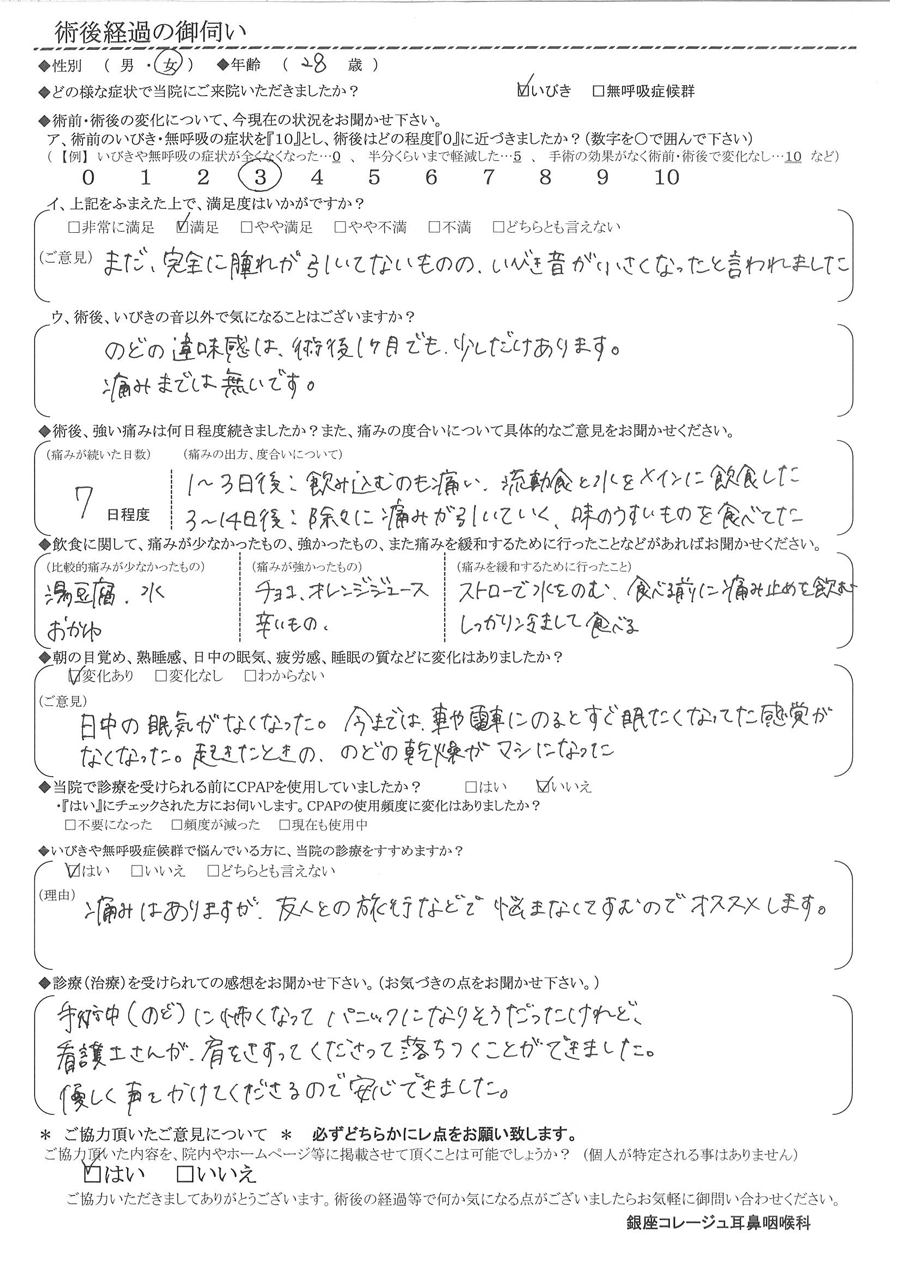 術後経過の御伺い
◆性別 （ 男 ・ 女 ） ◆年齢 （ 28 歳 ）
◆どの様な症状で当院にご来院いただきましたか？ ☑いびき □無呼吸症候群
◆術前・術後の変化について、今現在の状況をお聞かせ下さい。
ア、術前のいびき・無呼吸の症状を『10』とし、術後はどの程度『0』に近づきましたか？（数字を○で囲んで下さい）
（ 【例】 いびきや無呼吸の症状が全くなくなった…0 、 半分くらいまで軽減した…5 、 手術の効果がなく術前・術後で変化なし…10 など）
0 1 2 3 4 5 6 7 8 9 10
イ、上記をふまえた上で、満足度はいかがですか？
□非常に満足 ☑満足 □やや満足 □やや不満 □不満 □どちらとも言えない
（ご意見） まだ、完全に腫れが引いてないものの、いびき音が小さくなったと言われました
ウ、術後、いびきの音以外で気になることはございますか？
のどの違味感は、術後1ヶ月でも、少しだけあります。
痛みまでは無いです。
◆術後、強い痛みは何日程度続きましたか？また、痛みの度合いについて具体的なご意見をお聞かせください。
（痛みが続いた日数） （痛みの出方、度合いについて）
7 日程度
1〜3日後：飲み込むのも痛い、流動食と水をメインに飲食した
3〜14日後：除々に痛みが引いていく、味のうすいものを食べてた
◆飲食に関して、痛みが少なかったもの、強かったもの、また痛みを緩和するために行ったことなどがあればお聞かせください。
（比較的痛みが少なかったもの） （痛みが強かったもの） （痛みを緩和するために行ったこと）
湯豆腐、水 チョコ、オレンジジュース ストローで水をのむ、食べる前に痛み止めを飲む
おかゆ 辛いもの、 しっかり冷まして食べる
◆朝の目覚め、熟睡感、日中の眠気、疲労感、睡眠の質などに変化はありましたか？
☑変化あり □変化なし □わからない
（ご意見）
日中の眠気がなくなった。今までは、車や電車にのるとすぐ眠たくなってた感覚が
なくなった。起きたときの、のどの乾燥がマシになった
◆当院で診療を受けられる前にCPAPを使用していましたか？ □はい ☑いいえ
・『はい』にチェックされた方にお伺いします。CPAPの使用頻度に変化はありましたか？
□不要になった □頻度が減った □現在も使用中
◆いびきや無呼吸症候群で悩んでいる方に、当院の診療をすすめますか？
☑はい □いいえ □どちらとも言えない
（理由） 痛みはありますが、友人との旅行などで悩まなくてすむのでオススメします。
◆診療（治療）を受けられての感想をお聞かせ下さい。（お気づきの点をお聞かせ下さい。）
手術中（のど）に怖くなってパニックになりそうだったけれど、
看護士さんが、肩をさすってくださって落ちつくことができました。
優しく声をかけてくださるので安心できました。
＊ ご協力頂いたご意見について ＊ 必ずどちらかにレ点をお願い致します。
ご協力頂いた内容を、院内やホームページ等に掲載させて頂くことは可能でしょうか？ （個人が特定される事はありません）
☑はい □いいえ
ご協力いただきましてありがとうございます。術後の経過等で何か気になる点がございましたらお気軽に御問い合わせください。
銀座コレージュ耳鼻咽喉科